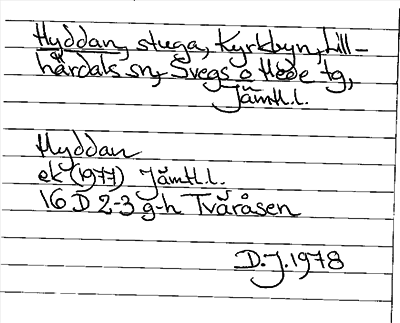 Hyddan, stuga, Kyrkbyn, Lill-
härdals sn, Svegs o Hede tg,
Jämtl.l.
Hyddan
ek (1977) Jämtl.l.
16 D 2-3 g-h Tvåråsen
D.J. 1978